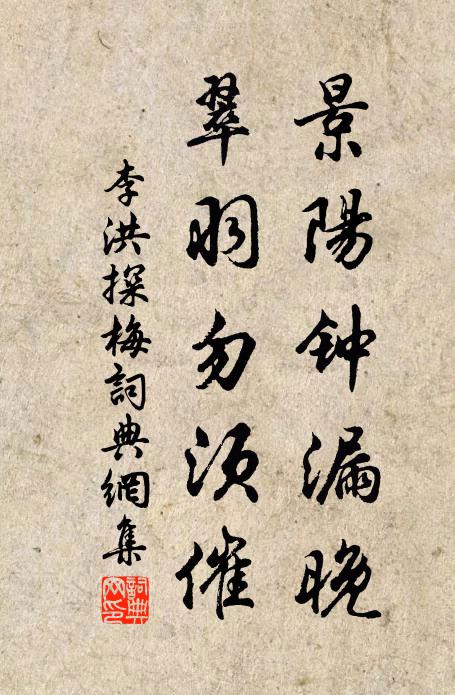 景陽钟漏晚
翠羽勿須催
李洪探梅詞典網集
詞典网印